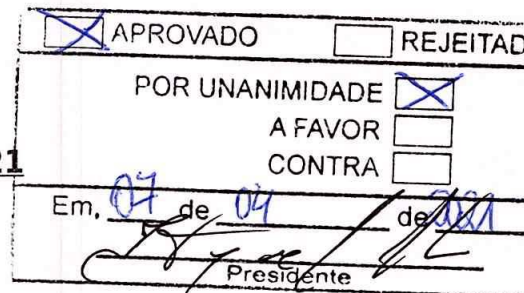 APROVADO REJEITAD
POR UNANIMIDADE
A FAVOR
21 CONTRA
Em, 07 de 04 de 2021
Presidente